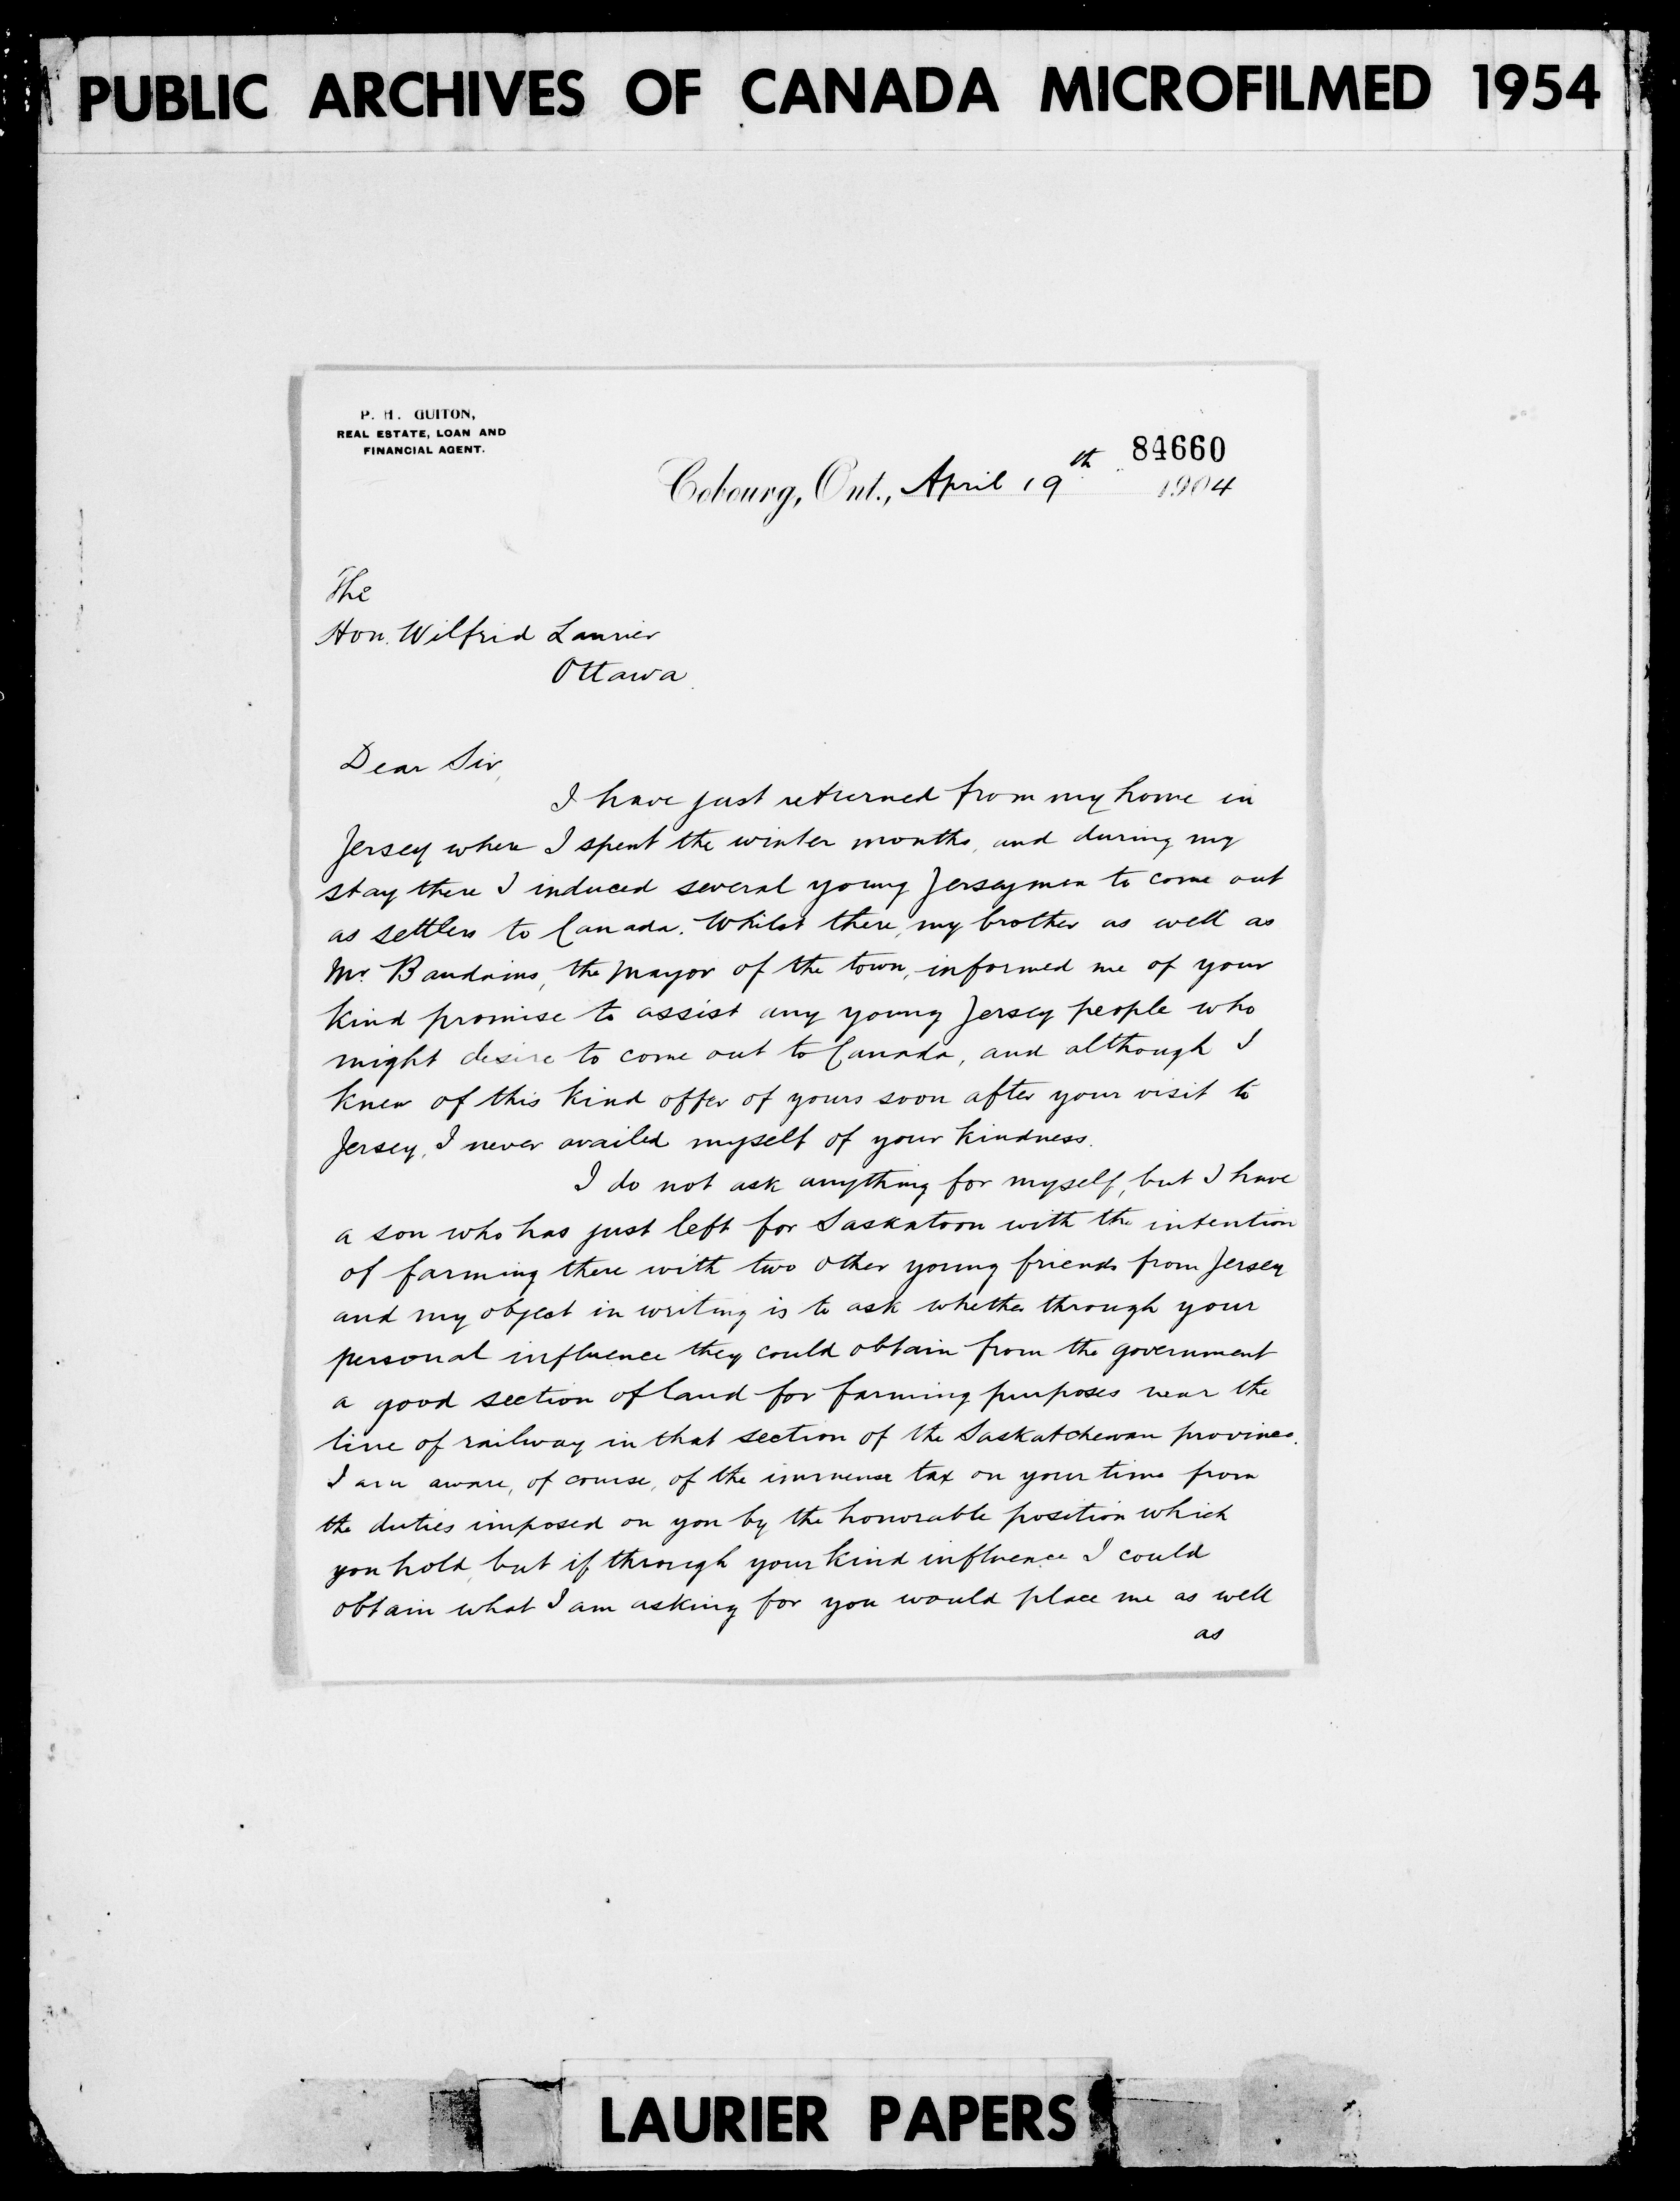 PUBLIC ARCHIVES OF CANADA MICROFILMED 1954
P. H. GUITON,
REAL ESTATE, LOAN AND
FINANCIAL AGENT.
84660
Cobourg, Ont., April 19th 1904
The
Hon. Wilfrid Laurier
Ottawa.
Dear Sir,
I have just returned from my home in
Jersey where I spent the winter months, and during my
stay there I induced several young Jerseymen to come out
as settlers to Canada. Whilst there, my brother as well as
Mr. Baudains, the Mayor of the town, informed me of your
kind promise to assist any young Jersey people who
might desire to come out to Canada, and although I
knew of this kind offer of yours soon after your visit to
Jersey, I never availed myself of your kindness.
I do not ask anything for myself, but I have
a son who has just left for Saskatoon with the intention
of farming there with two other young friends from Jersey
and my object in writing is to ask whether through your
personal influence they could obtain from the government
a good section of land for farming purposes near the
line of railway in that section of the Saskatchewan province.
I am aware, of course, of the immense tax on your time from
the duties imposed on you by the honorable position which
you hold, but if through your kind influence I could
obtain what I am asking for you would place me as well
as
LAURIER PAPERS